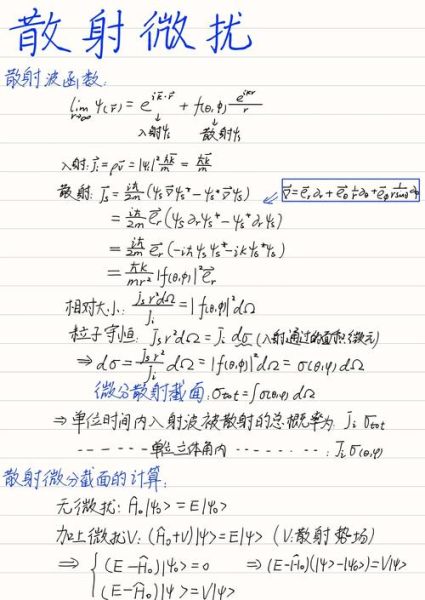 散射微扰
散射波函数:
lim r→∞ ψ(r⃗) = e^{ik⃗·r⃗} + f(θ,φ) e^{ikr}/r
入射ψi 散射ψs
入射: J⃗i = ρv⃗ = |ψi|² ħk⃗/m = ħk⃗/m
散射: J⃗s = iħ/2m (ψs ∇⃗ψs* - ψs* ∇⃗ψs) ⇐ ∇⃗ = e⃗r ∂r + e⃗θ 1/r ∂θ + e⃗φ 1/(r sinθ) ∂φ
= iħ/2m e⃗r (ψs ∂rψs* - ψs* ∂rψs)
= iħ/2m e⃗r (-ik ψsψs* - ik ψs*ψs)
= ħk/mr² |f(θ,φ)|² e⃗r
相对大小: Js r²dΩ / Ji = |f(θ,φ)|² dΩ
粒子守恒: Js r²dΩ = Ji dσ (入射通过的面积微元)
⇒ dσ = Js r²/Ji dΩ = |f(θ,φ)|² dΩ = σ(θ,φ) dΩ
微分散射截面: σtot = ∫σ(θ,φ) dΩ
⇒ 单位时间内入射波被散射的总概率为 Ji σtot
------ 单位立体角内 ········: Ji σ(θ,φ)
散射微分截面的计算:
无微扰: Ĥ0|ψ0> = E|ψ0>
加上微扰V: (Ĥ0+V)|ψ> = E|ψ> (V:散射势场)
⇒ { (E-Ĥ0)|ψ0> = 0 ⇒ (E-Ĥ0)(|ψ>-|ψ0>) = V|ψ>
(E-Ĥ0)|ψ> = V|ψ>